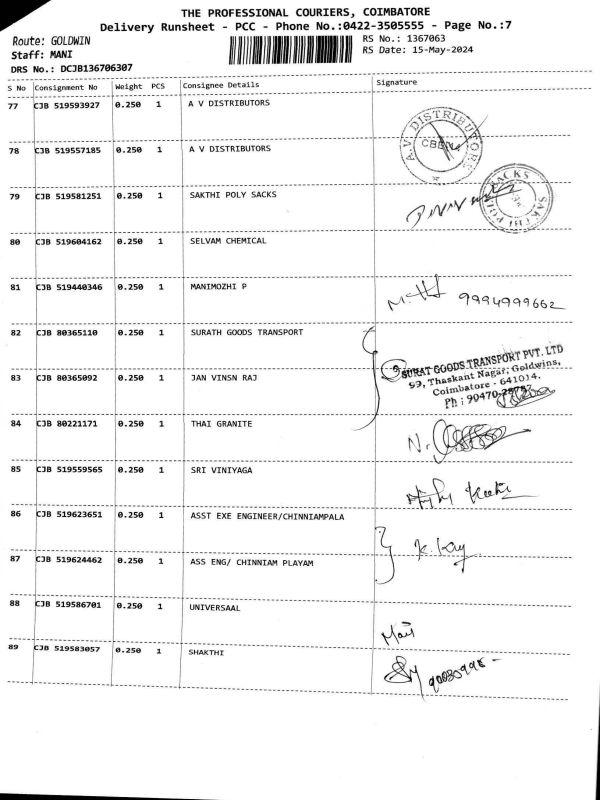 THE PROFESSIONAL COURIERS, COIMBATORE
Delivery Runsheet - PCC - Phone No.:0422-3505555 - Page No.:7
Route: GOLDWIN
RS No.: 1367063
Staff: MANI
RS Date: 15-May-2024
DRS No.: DCJB136706307
S No Consignment No Weight PCS Consignee Details Signature
77 CJB 519593927 0.250 1 A V DISTRIBUTORS
A.V. DISTRIBUTORS
78 CJB 519557185 0.250 1 A V DISTRIBUTORS
79 CJB 519581251 0.250 1 SAKTHI POLY SACKS
SAKTHI POLY SACKS
80 CJB 519604162 0.250 1 SELVAM CHEMICAL
81 CJB 519440346 0.250 1 MANIMOZHI P
9994999662
82 CJB 80365110 0.250 1 SURATH GOODS TRANSPORT
SURAT GOODS TRANSPORT PVT. LTD
99, Thaskant Nagar, Goldwins,
Coimbatore - 641014.
Ph : 90470
83 CJB 80365092 0.250 1 JAN VINSN RAJ
84 CJB 80221171 0.250 1 THAI GRANITE
N.
85 CJB 519559565 0.250 1 SRI VINIYAGA
86 CJB 519623651 0.250 1 ASST EXE ENGINEER/CHINNIAMPALA
87 CJB 519624462 0.250 1 ASS ENG/ CHINNIAM PLAYAM
88 CJB 519586701 0.250 1 UNIVERSAAL
89 CJB 519583057 0.250 1 SHAKTHI